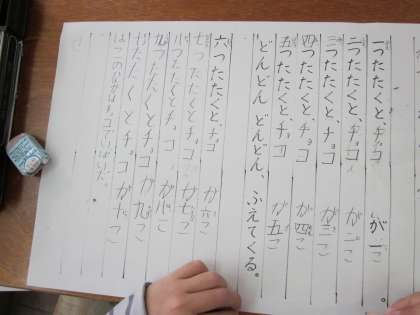 一つたたくと、チョコが一こ。
二つたたくと、チョコが二こ
三つたたくと、チョコが三こ
四つたたくと、チョコが四こ
五つたたくと、チョコが五こ
どんどんどんどん、ふえてくる。
六つたたくと、チョコが六こ
七つたたくとチョコが七こ
八つたたくとチョコが八こ
九つたたくとチョコが九こ
十たたくとチョコが十こ
はこのなかはチョコでいっぱいだ。